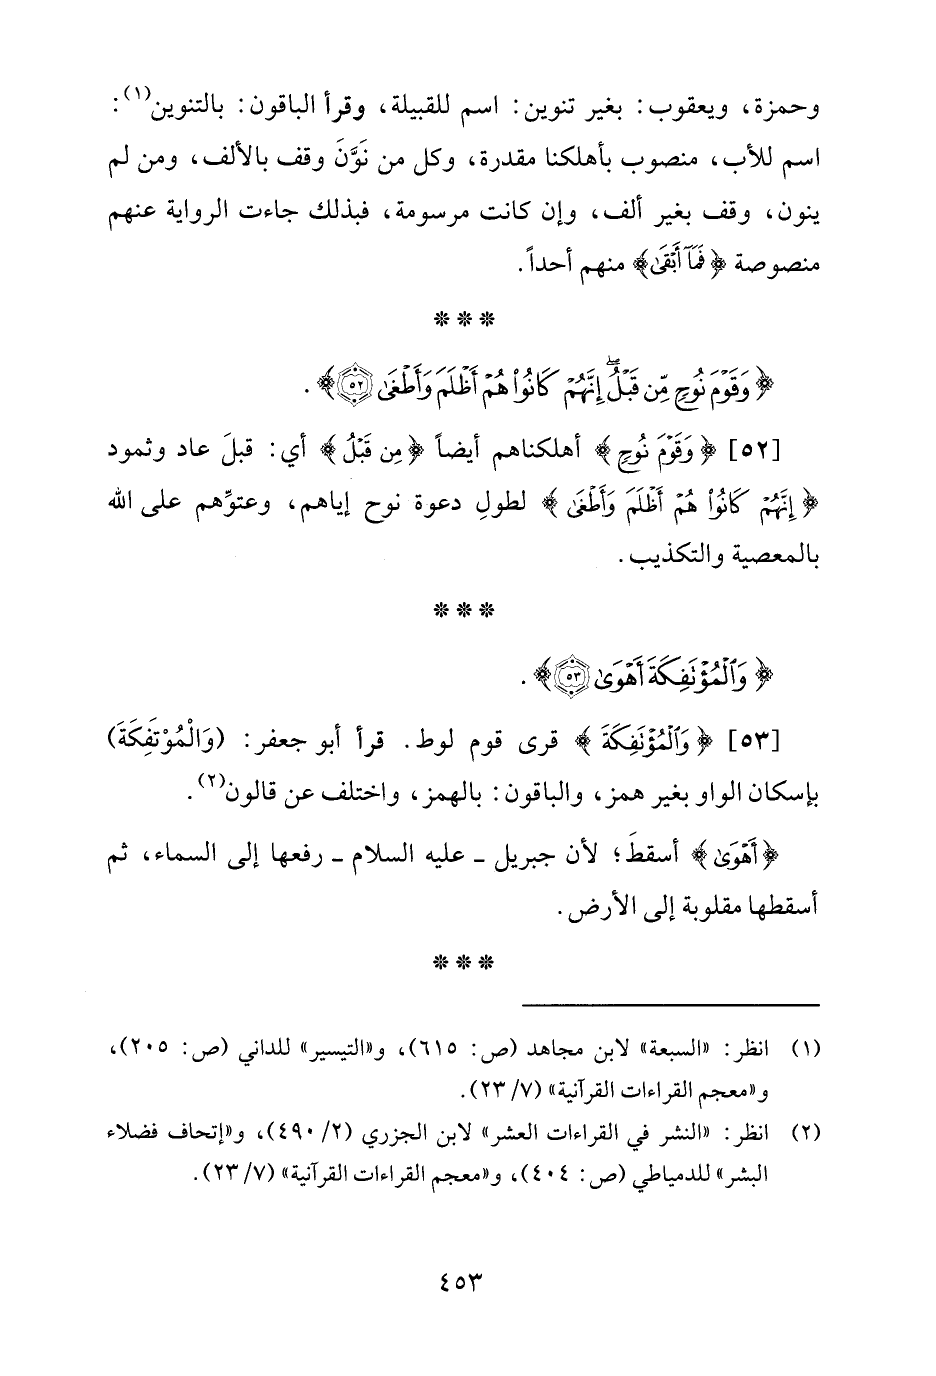 وحمزة، ويعقوب: بغير تنوين: اسم للقبيلة، وقرأ الباقون: بالتنوين(١):
اسم للأب، منصوب بأهلكنا مقدرة، وكل من نَوَّنَ وقف بالألف، ومن لم
ينون، وقف بغير ألف، وإن كانت مرسومة، فبذلك جاءت الرواية عنهم
منصوصة ﴿فَمَآ أَبْقَىٰ﴾ منهم أحداً.
* * *
﴿وَقَوْمَ نُوحٍ مِّن قَبْلُ ۖ إِنَّهُمْ كَانُوا۟ هُمْ أَظْلَمَ وَأَطْغَىٰ ٥٢﴾.
[٥٢] ﴿وَقَوْمَ نُوحٍ﴾ أهلكناهم أيضاً ﴿مِن قَبْلُ﴾ أي: قبلَ عاد وثمود
﴿إِنَّهُمْ كَانُوا۟ هُمْ أَظْلَمَ وَأَطْغَىٰ﴾ لطولِ دعوة نوح إياهم، وعتوِّهم على الله
بالمعصية والتكذيب.
* * *
﴿وَٱلْمُؤْتَفِكَةَ أَهْوَىٰ ٥٣﴾.
[٥٣] ﴿وَٱلْمُؤْتَفِكَةَ﴾ قرى قوم لوط. قرأ أبو جعفر: (وَالْمُوْتَفِكَةَ)
بإسكان الواو بغير همز، والباقون: بالهمز، واختلف عن قالون(٢).
﴿أَهْوَىٰ﴾ أسقطَ؛ لأن جبريل ـ عليه السلام ـ رفعها إلى السماء، ثم
أسقطها مقلوبة إلى الأرض.
* * *
(١) انظر: «السبعة» لابن مجاهد (ص: ٦١٥)، و«التيسير» للداني (ص: ٢٠٥)،
و«معجم القراءات القرآنية» (٧/ ٢٣).
(٢) انظر: «النشر في القراءات العشر» لابن الجزري (٢/ ٤٩٠)، و«إتحاف فضلاء
البشر» للدمياطي (ص: ٤٠٤)، و«معجم القراءات القرآنية» (٧/ ٢٣).
٤٥٣